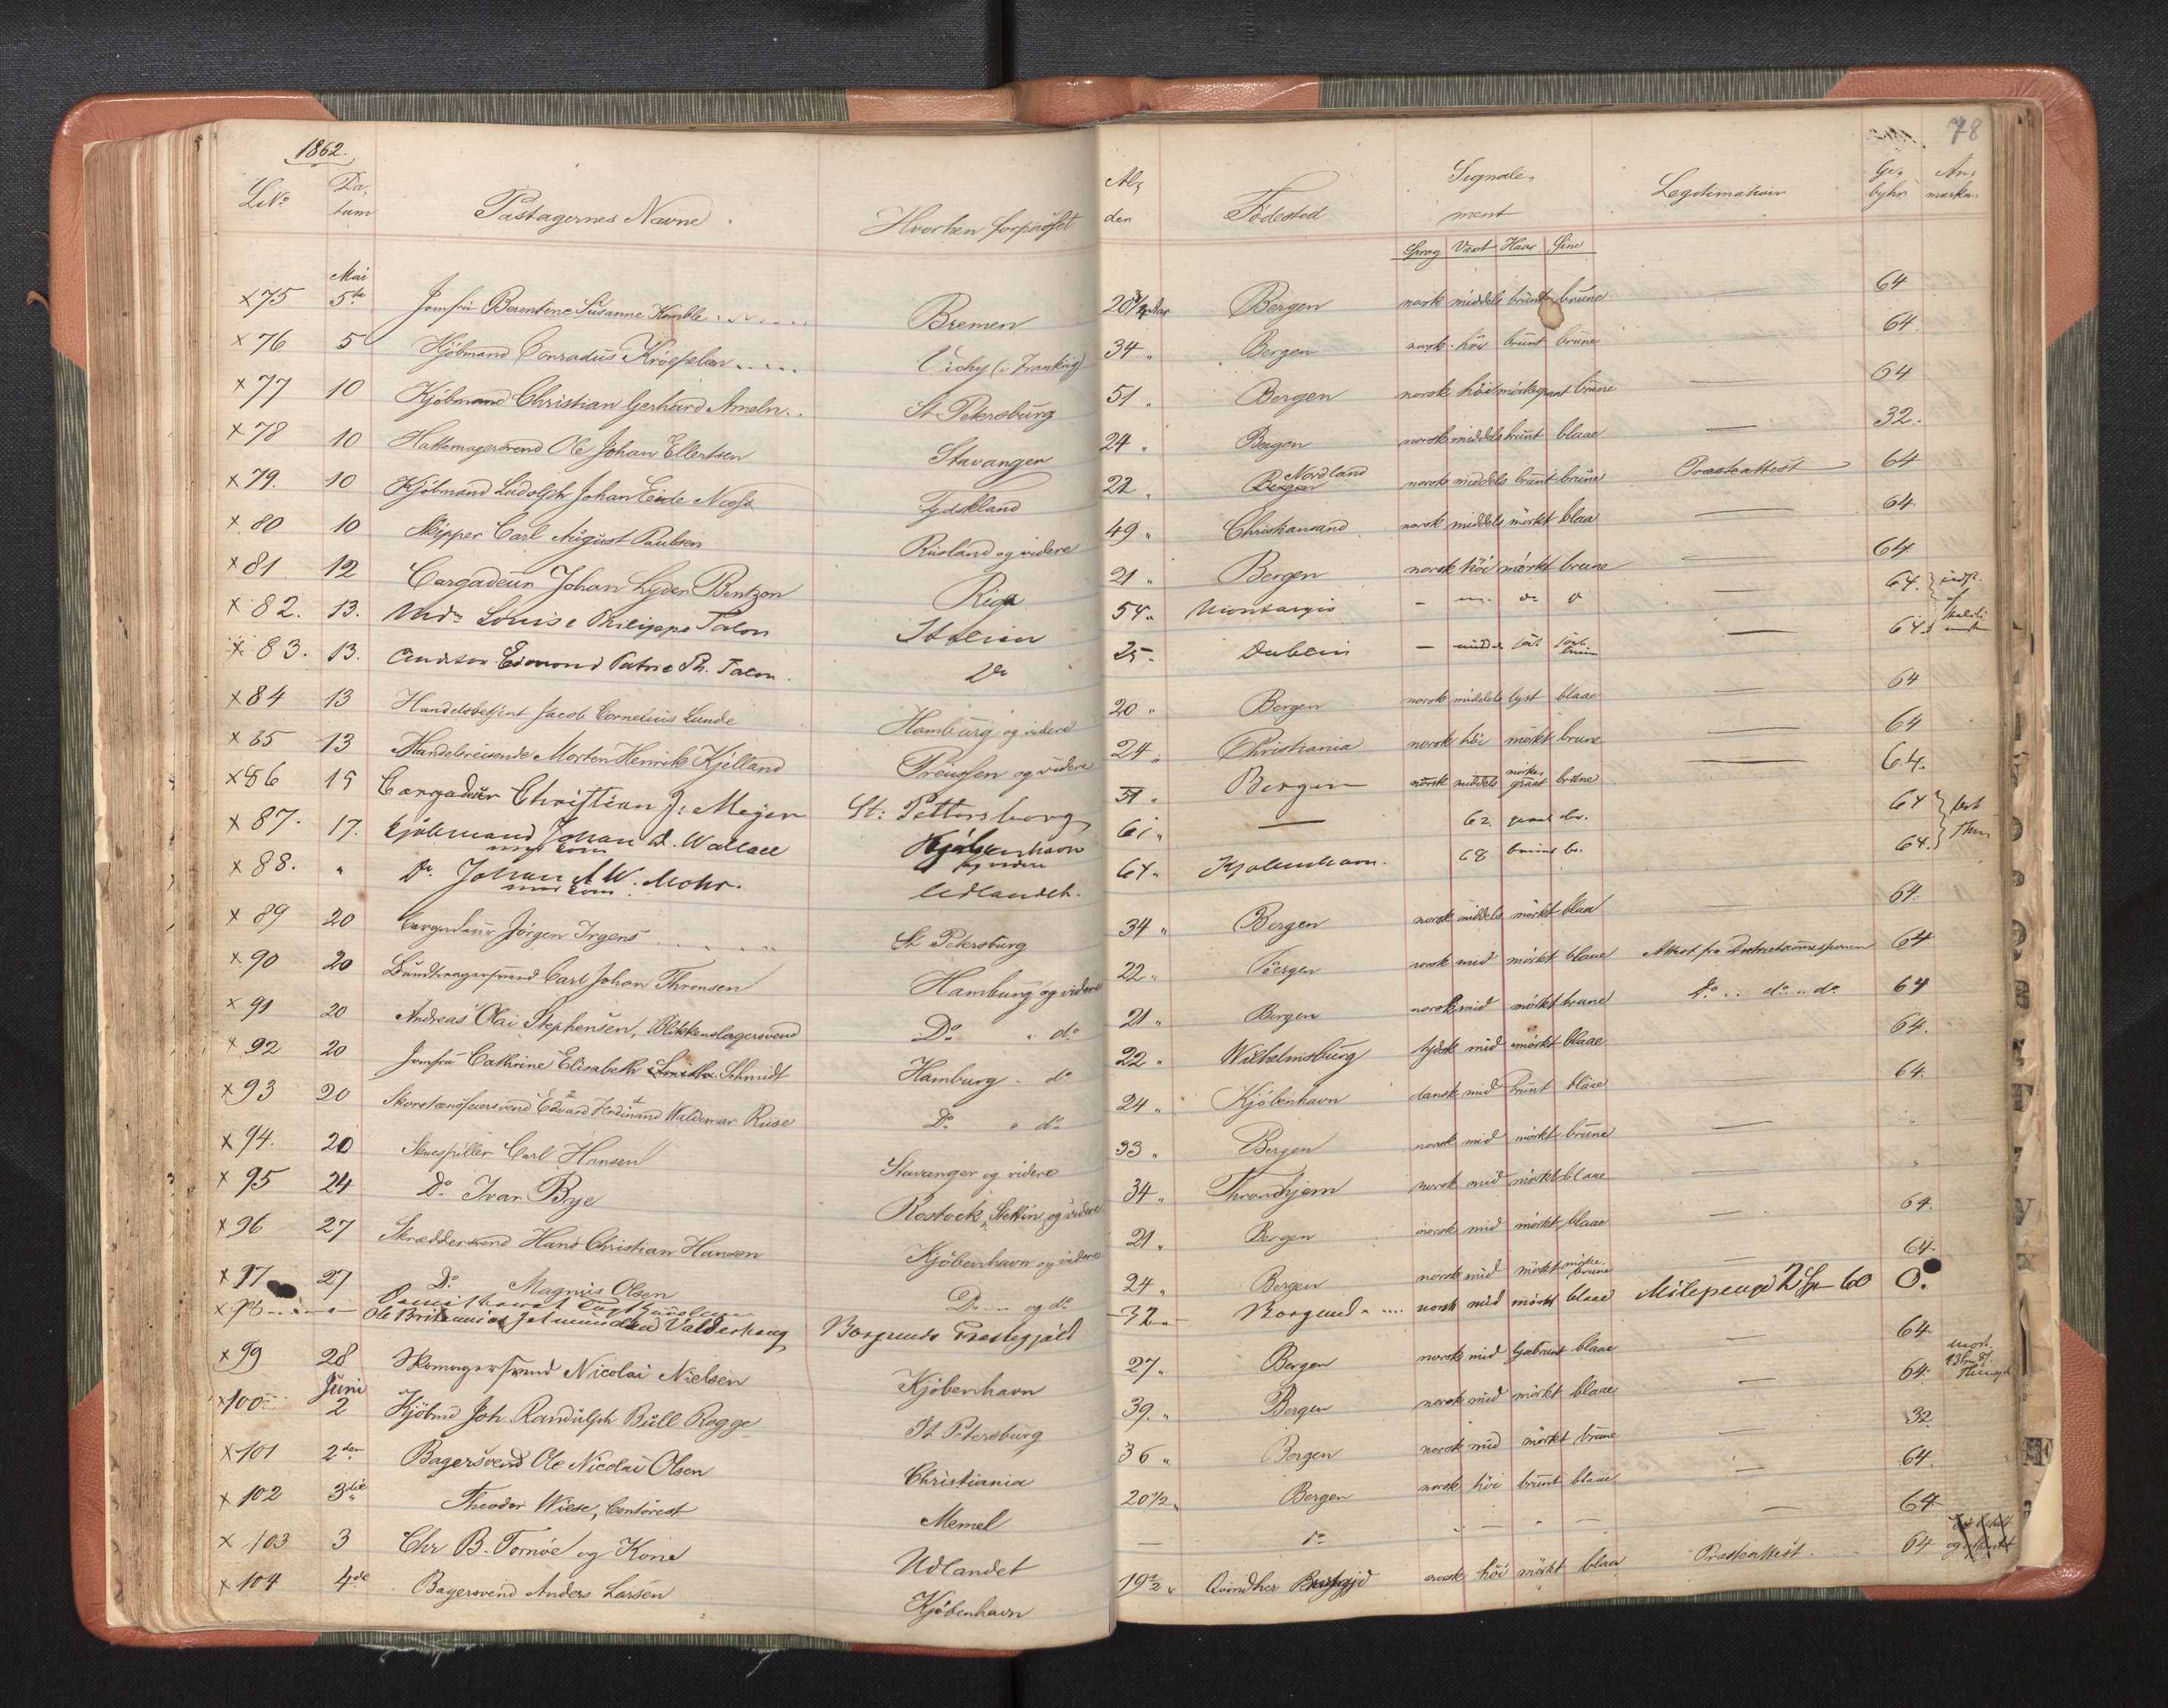 1862.
78
LNo Datum Passagernes Navne Hvorhen forpasset Alder Fødested Signalement Legitimation Gebyhr Anmærkn.
Sprog Væxt Haar Øine
Mai
x 75 5te Jomfru Berentine Susanne Bremen 20 3/4 Aar Bergen norsk middels brunt brune — 64
x 76 5 Kjøbmand Conradus Vichy (i Frankrig) 34 " Bergen norsk høi brunt brune 64
x 77 10 Kjøbmand Christian Gerhard Ameln St Petersburg 51 " Bergen norsk høi brune — 64
x 78 10 Hattemagersvend Ole Johan Ellertsen Stavanger 24 " Bergen norsk middels brunt blaae — 32.
x 79. 10 Kjøbmand Ludolph Johan Eide Tydskland 22 " Bergen Nordland norsk middels brunt brune Præsteattest 64
x 80 10 Skipper Carl August Paulsen Rusland og videre 49 " Christiansand norsk middels mørkt blaa — 64.
x 81 12 Cargadeur Johan Lyder Bentzon Riga 21 " Bergen norsk høi mørkt brune — 64
x 82. 13. Louise Philippe Talon Italien 54 " — 64.
x 83. 13. Edmond Patric Ph. Talon. Do 25 " Dublin — 64
x 84 13 Handelsbetjent Jacob Cornelius Lunde Hamburg og videre 20 " Bergen norsk middels lyst blaae — 64
x 85 13 Handelsreisende Morten Henrik Kjelland Preussen og videre 24 " Christiania norsk høi mørkt brune — 64
x 86 15 Cargadeur Christian J: Meyer St: Pettersborg 51 " Bergen norsk middels mørkegraat brune — 64.
x 87. 17. Kjøbmand Johan d. Wallace Kjøbenhavn og videre 61 " — 62. 64
x 88. " Do Johan A W. Mohr. Udlandet. 64 " Kjøbenhavn. 68 64.
x 89 20 Cargadeur Jørgen Irgens St Petersburg 34 " Bergen norsk middels mørkt blaa — 64.
x 90 20 Carl Johan Thronsen Hamburg og videre 22 " Bergen norsk mid mørkt blaae Attest fra 64
x 91 20 Andreas Olai Stephensen, Blikkenslagersvend Do " do 21 " Bergen norsk mid mørkt brune Do .. do " do 64
x 92 20 Jomfru Cathrine Elisabeth Schmidt Hamburg " do 22 " Wilhelmsburg tydsk mid mørkt blaae 64.
x 93 20 Skorstensfeiersvend Edvard Ferdinand Waldemar Ruse Do " do 24 " Kjöbenhavn dansk mid brunt blaae 64.
x 94. 20 Skuespiller Carl Hansen Stavanger og videre 33 " Bergen norsk mid mørkt brune — "
x 95 24 Do Ivar Bye Rostock, Stettin og videre 34 " Throndhjem norsk mid mørkt blaae — "
x 96 27 Skræddersvend Hans Christian Hansen Kjöbenhavn og videre 21 " Bergen norsk mid mørkt blaae — 64.
x 97 27 Do Magnus Olsen Do og do 24 " Bergen norsk mid mørkt mørkebrune — 64
x 98 Ole Valderhaug Borgunds Præstegjæld 32 " Borgund norsk mid mørkt blaae 60 0.
x 99 28 Skomagersvend Nicolai Nielsen Kjöbenhavn 27 " Bergen norsk mid blaae — 64
Juni
x 100 2 Kjöbmd Joh. Randulph Bull Rogge St Petersburg 39. " Bergen norsk mid mørkt blaae — 64.
x 101 2den Bagersvend Ole Nicolai Olsen Christiania 36 " Bergen norsk mid mørkt brune — 32
x 102 3die Theodor Wiese, Contorist Memel 20 1/2 " Bergen norsk høi brunt blaae — 64.
x 103 3 Chr B. Tornøe og Kone Udlandet — do — 64
x 104 4de Bagersvend Anders Larsen Kjöbenhavn 19 1/2 " norsk höi mörkt blaa Præsteattest 64